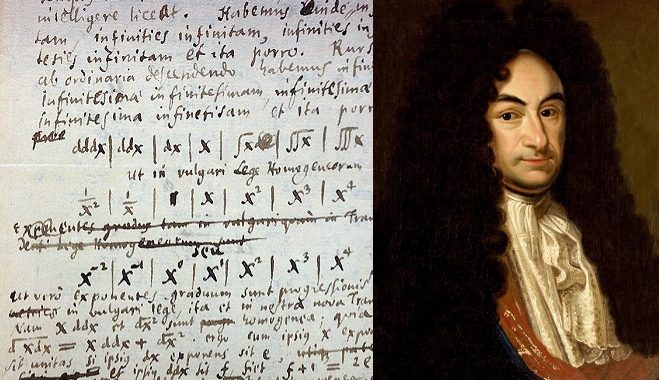 intelligere licent. Habemus inde in
tam infinities infinitam, infinities in
ties infinitam et ita porro. Rurs
ab ordinaria descendendo habemus infin
infinitesimā infinitesimam, infinitesima
infinitesima infinitisam, et ita porr
dddx | ddx | dx | x | ∫x | ∫∫x | ∫∫∫x
Ut in vulgari Lege Homogeneorum
1/x² | 1/x | 1 | x | x² | x³ | x⁴
Exponentes gradus tam in vulgari quam in Tran
Lege Homogeneorum sunt
seu
x⁻² | x⁻¹ | x⁰ | x¹ | x² | x³ | x⁴
Ut verò exponentes graduum sunt progressionis
in vulgari lege, ita et in nostra nova Tran
x ddx et dx² sunt homogenea, quia
d xdx = x ddx + dx². ergo cum ipsig x expon
sit unitas si ipsig dx exponens sit e,
et ipsig ddx sit f fiet f + 1 = 2e